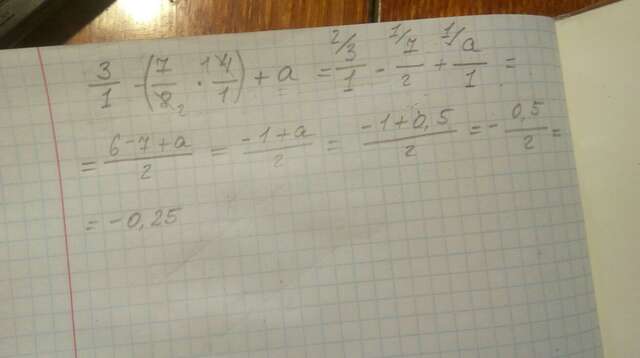 3/1 - (7/8 2 · 1 4/1) + a = 2/ 3/1 - 1/ 7/2 + 1/ a/1 =
= 6-7+a/2 = -1+a/2 = -1+0,5/2 = - 0,5/2 =
= -0,25